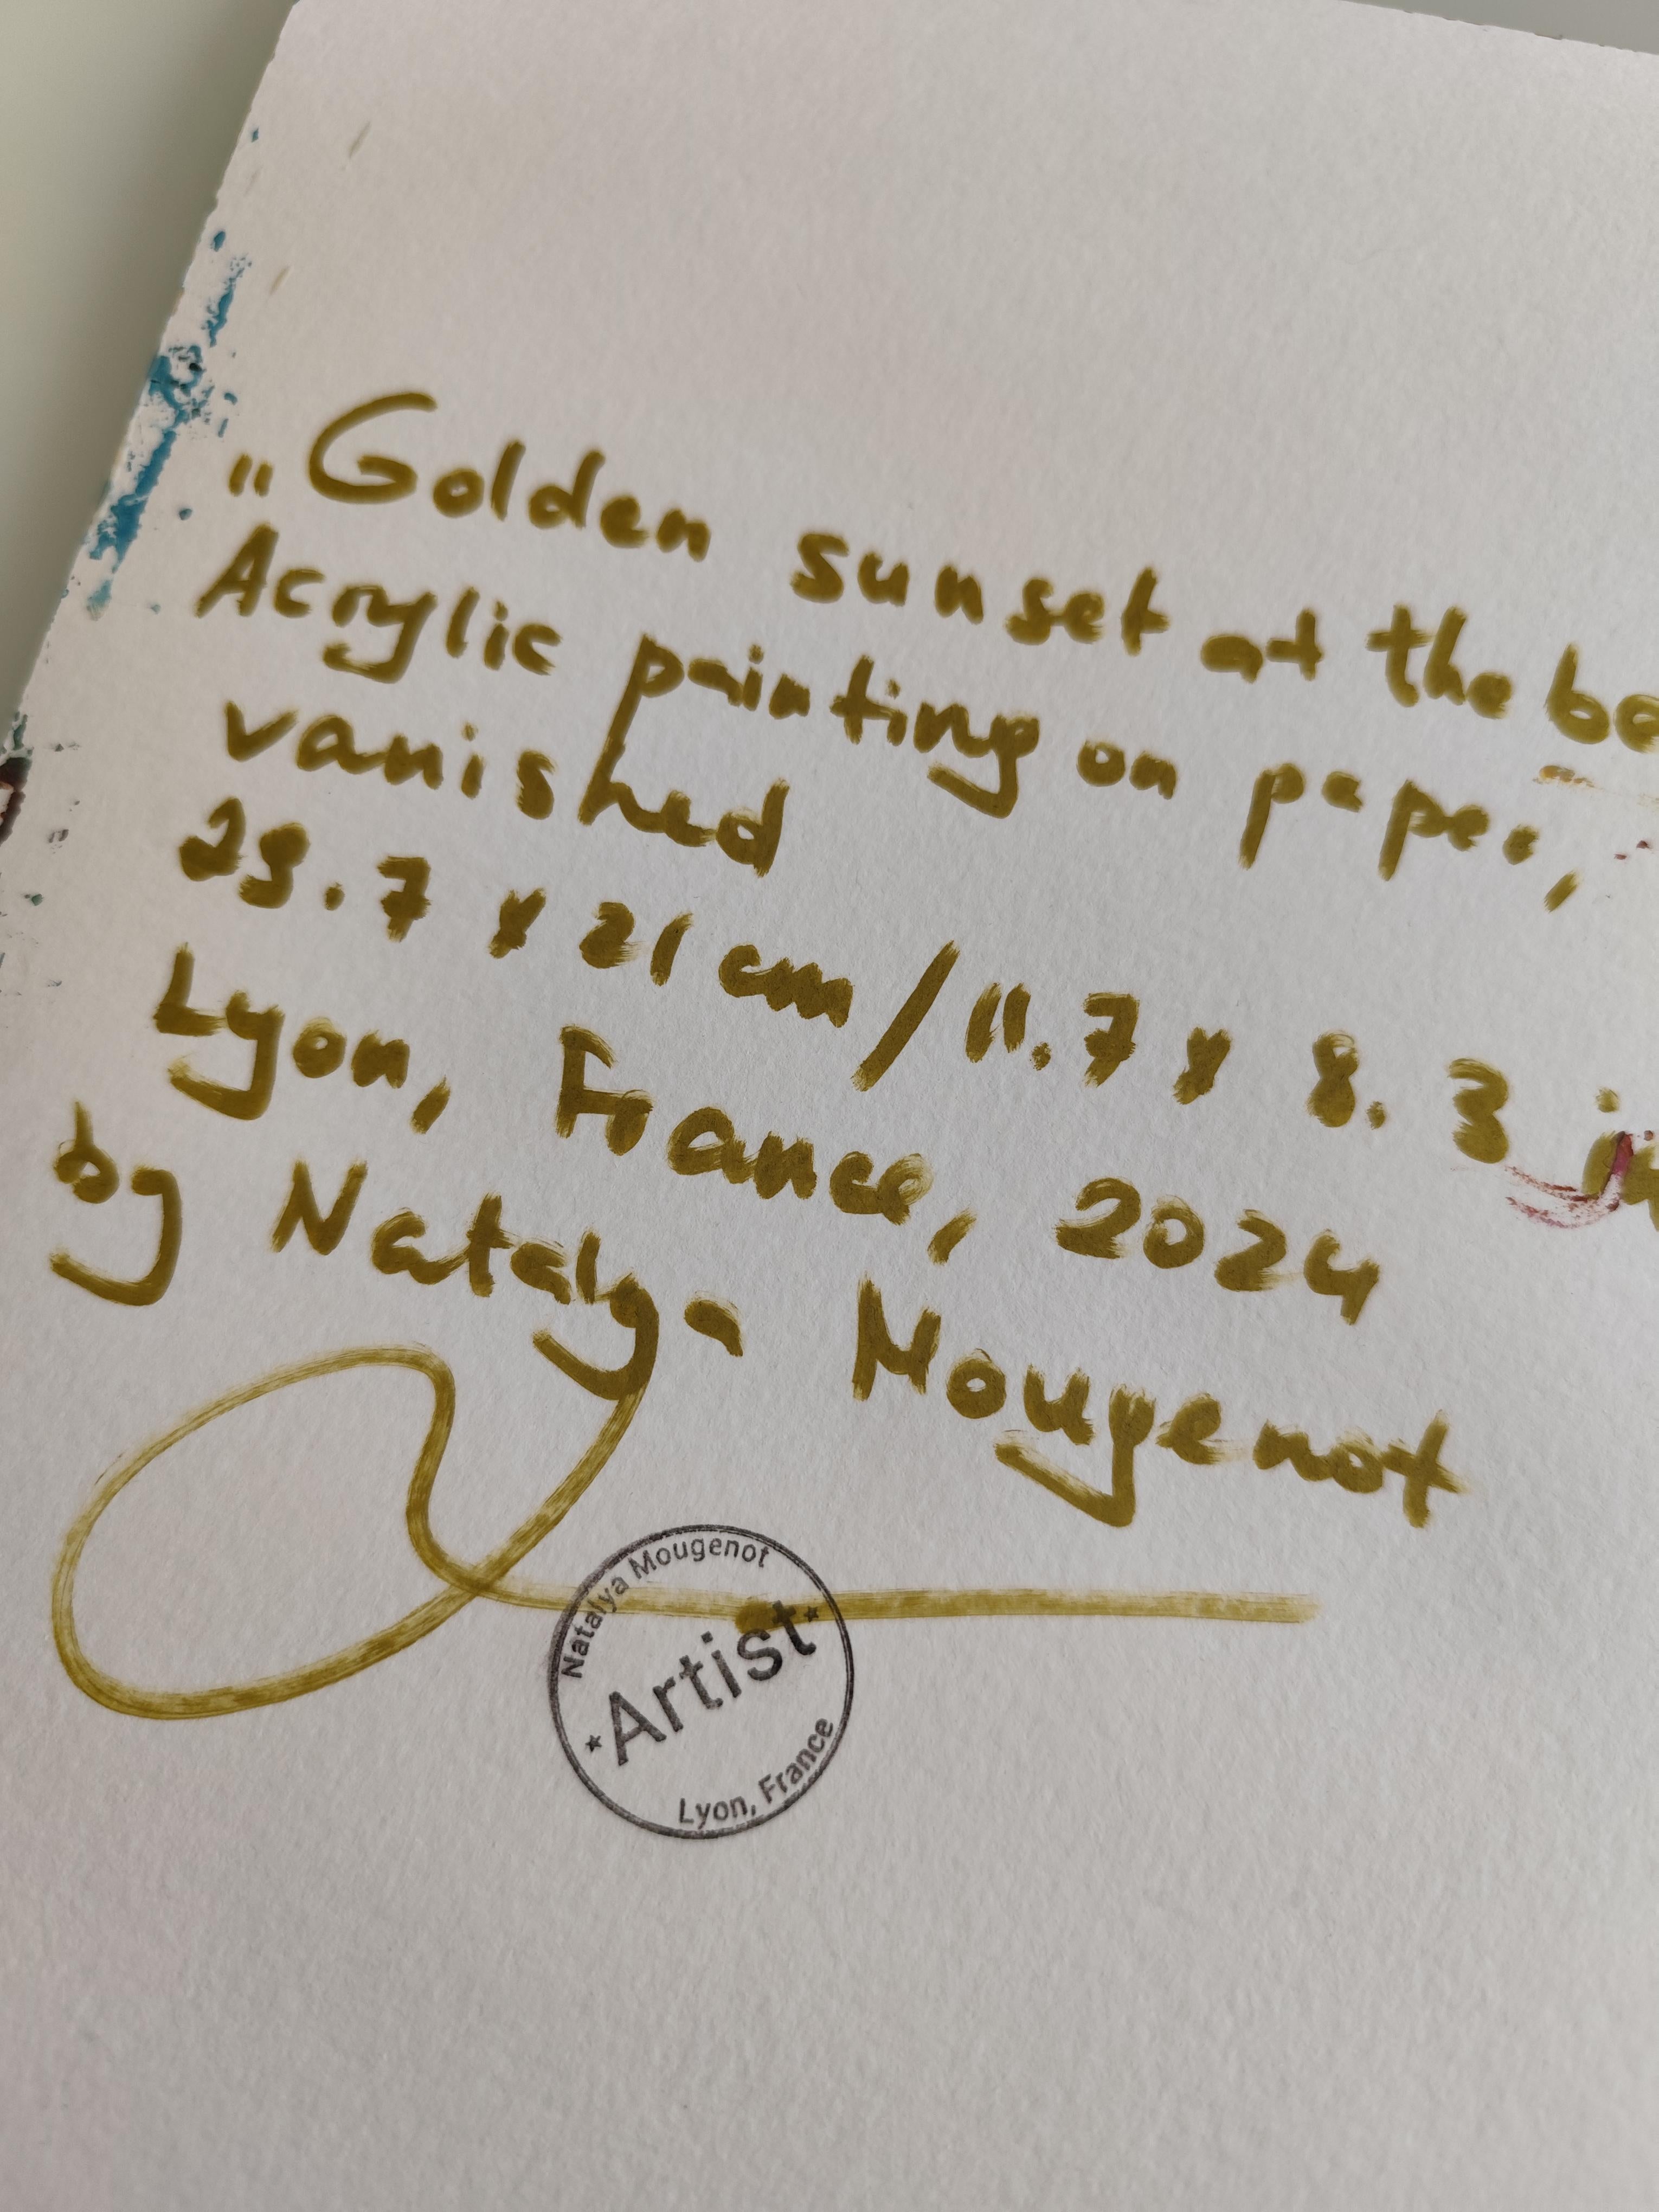 "Golden sunset at the
Acrylic painting on paper,
vanished
29.7 x 21 cm / 11.7 x 8.3
Lyon, France, 2024
by Natalya Mougenot
Natalya Mougenot
Artist
Lyon, France